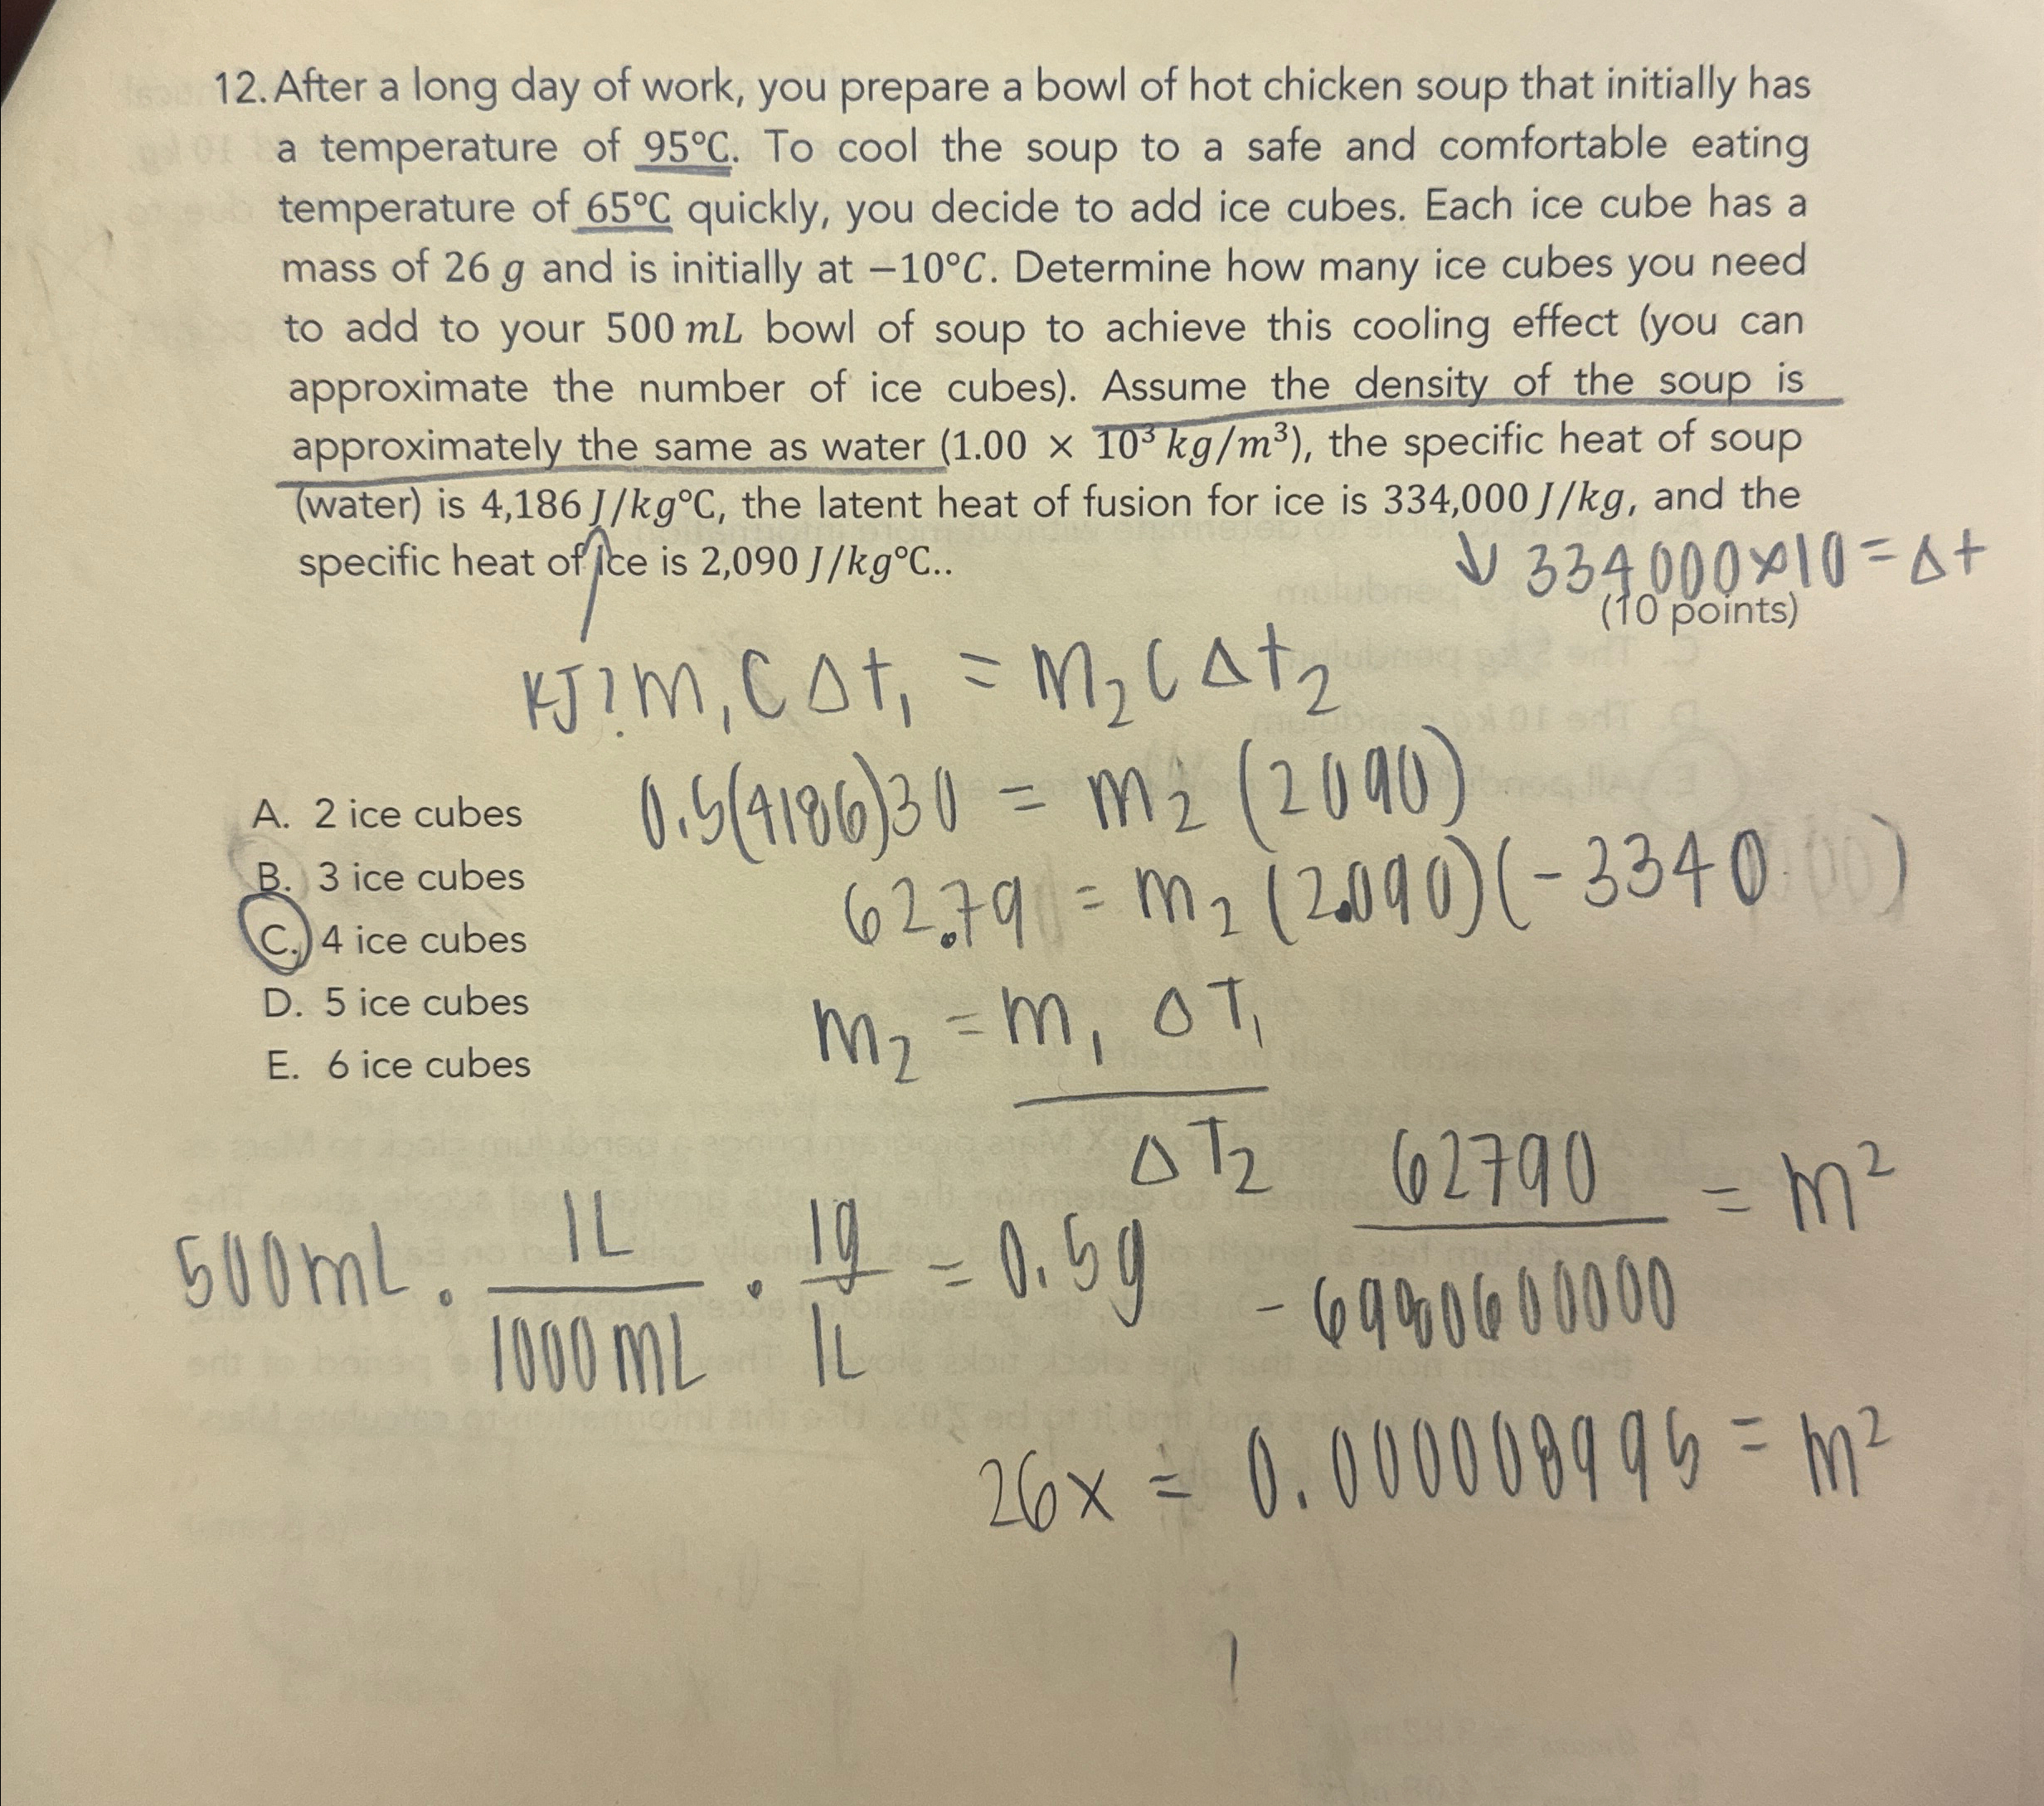 12. After a long day of work, you prepare a bowl of hot chicken soup that initially has
a temperature of 95°C. To cool the soup to a safe and comfortable eating
temperature of 65°C quickly, you decide to add ice cubes. Each ice cube has a
mass of 26 g and is initially at −10°C. Determine how many ice cubes you need
to add to your 500 mL bowl of soup to achieve this cooling effect (you can
approximate the number of ice cubes). Assume the density of the soup is
approximately the same as water (1.00 × 10³ kg/m³), the specific heat of soup
(water) is 4,186 J/kg°C, the latent heat of fusion for ice is 334,000 J/kg, and the
specific heat of ice is 2,090 J/kg°C..
↓ 334000×10 = Δt
(10 points)
KJ? m₁CΔt₁ = m₂CΔt₂
0.5(4186)30 = m₂ (2090)
62.79 = m₂ (2.090)(-3340)
A. 2 ice cubes
B. 3 ice cubes
C. 4 ice cubes
D. 5 ice cubes
E. 6 ice cubes
m₂ = m₁ ΔT₁
ΔT₂
62790 = m²
-6980600000
500mL · 1L · 1g = 0.5g
1000mL 1L
26x = 0.000008995 = m²